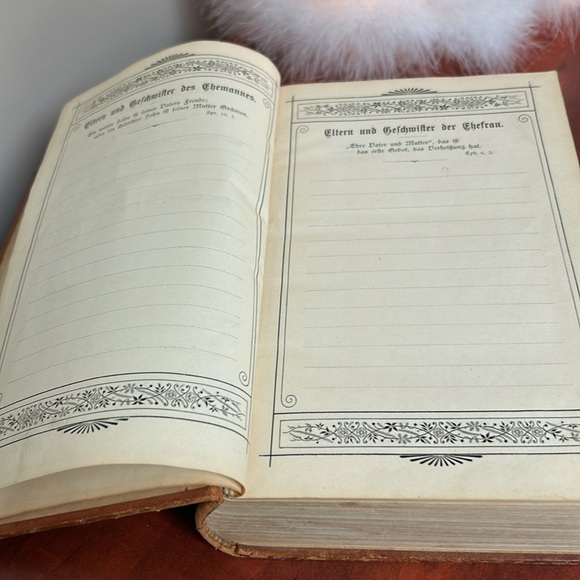 Eltern und Geschwister des Ehemannes.
Ein weiser Sohn ist seines Vaters Freude;
aber ein thörichter Sohn ist seiner Mutter Grämen.
Spr. 10, 1.
Eltern und Geschwister der Ehefrau.
„Ehre Vater und Mutter“, das ist
das erste Gebot, das Verheißung hat.
Eph. 6, 2.